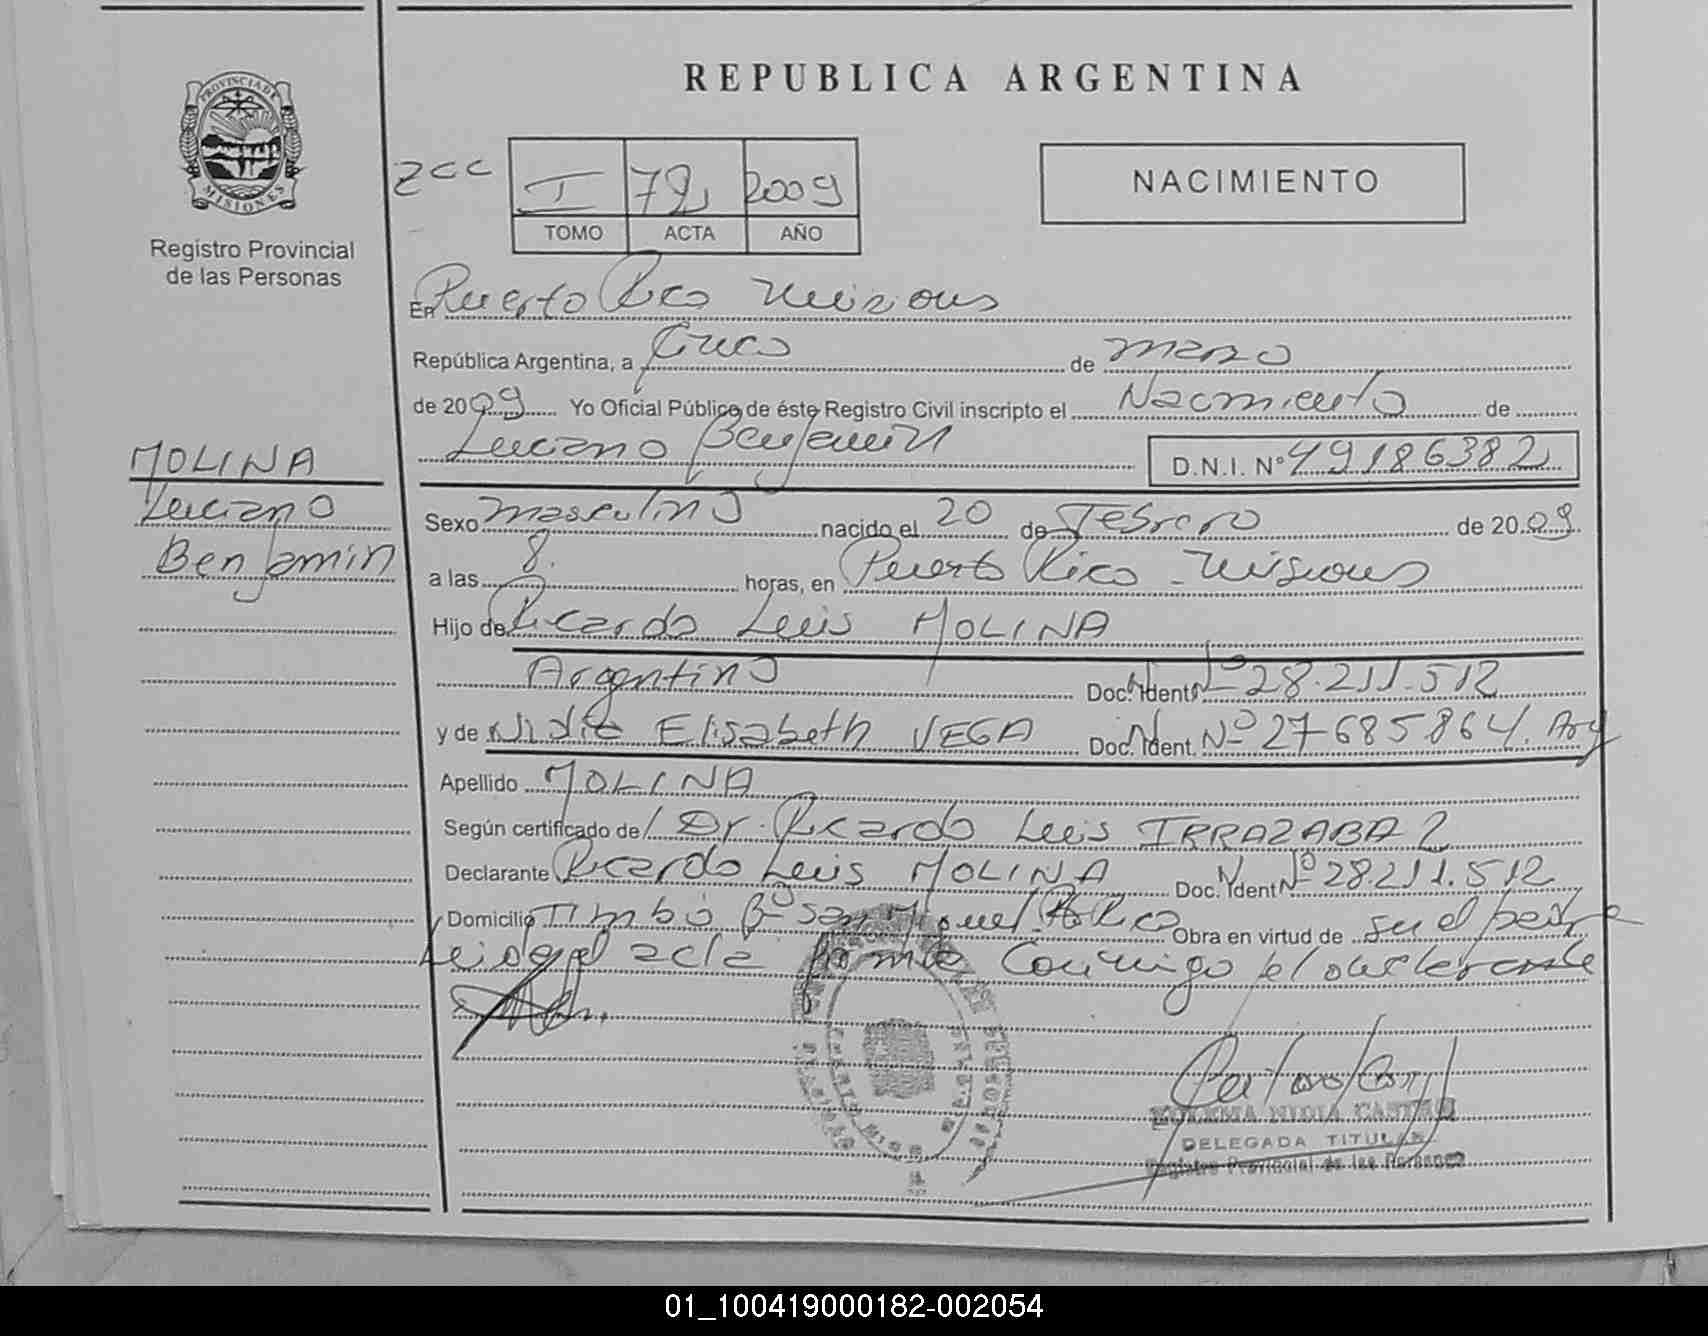 REPUBLICA ARGENTINA
PROVINCIA DE
MISIONES
Registro Provincial
de las Personas
ZCC
I 72 2009
TOMO ACTA AÑO
NACIMIENTO
En Puerto Rico Misiones
República Argentina, a Cinco de marzo
de 2009 Yo Oficial Público de éste Registro Civil inscripto el Nacimiento de
Luciano Benjamin D.N.I. Nº 49186382
MOLINA
Luciano
Benjamin
Sexo masculino nacido el 20 de Febrero de 2009
a las 8. horas, en Puerto Rico - Misiones
Hijo de Ricardo Luis MOLINA
Argentino Doc. Ident. Nº 28.211.512
y de Nidia Elisabeth VEGA Doc. Ident. Nº 27685864. Arg
Apellido MOLINA
Según certificado de Dr. Ricardo Luis IRRAZABAL
Declarante Ricardo Luis MOLINA Doc. Ident Nº 28.211.512
Domicilio Timbó Bº San Miguel Pto Rico Obra en virtud de ser el padre
Leida el acta firma conmigo el declarante
CASTRO
DELEGADA TITULAR
Registro Provincial de las Personas
01_100419000182-002054